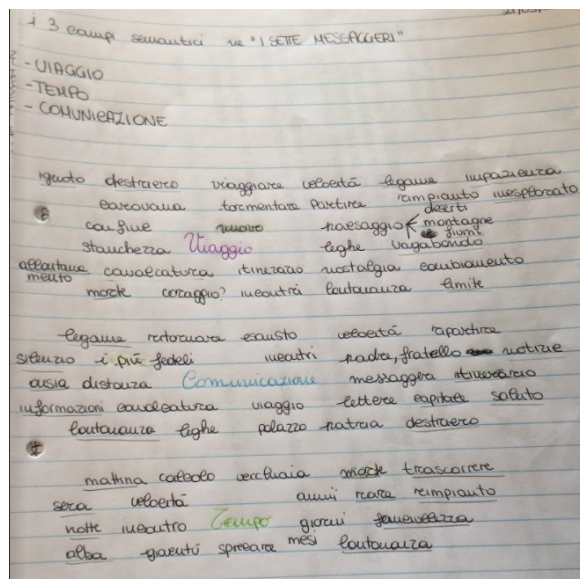 i 3 campi semantici ne "I SETTE MESSAGGERI"
- VIAGGIO
- TEMPO
- COMUNICAZIONE
ignoto destriero viaggiare velocità legame impazienza
carovana tormentare partire rimpianto inesplorato
confine paesaggio deserti montagne fiumi
stanchezza Viaggio leghe vagabondo
allontanamento cavalcatura itinerario nostalgia cambiamento
morte coraggio incontri lontananza limite
legame ritornare esausto velocità ripartire
silenzio i più fedeli incontri padre, fratello notizie
ansia distanza Comunicazione messaggeri itinerario
informazioni cavalcatura viaggio lettere capitale saluto
lontananza leghe palazzo patria destriero
mattina calcolo vecchiaia morte trascorrere
sera velocità anni rimpianto
notte incontro Tempo giorni
alba gioventù sprecare mesi lontananza